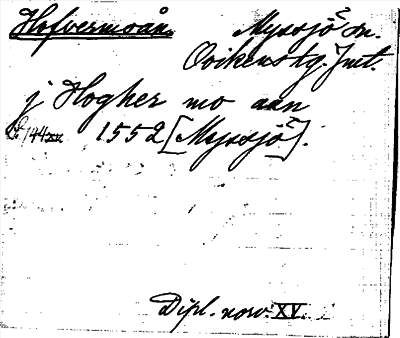 Hofvermoån. Myssjö sn.
Ovikens tg. Jmt.
j Hogher mo aan
144 XV 1552 [Myssjö].
Dipl. norv. XV.